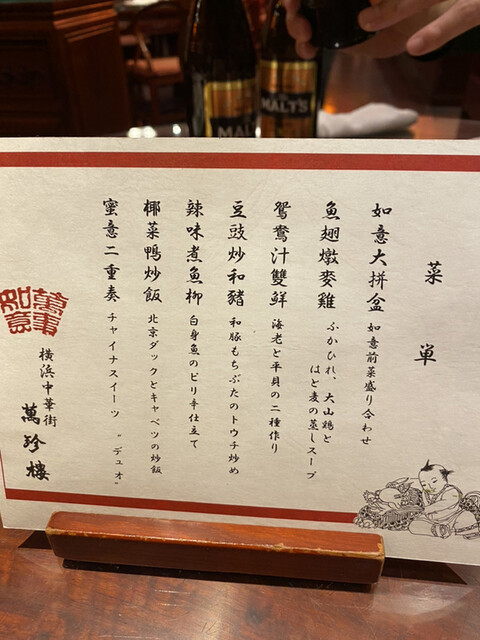 菜単
如意大拼盆 如意前菜盛り合わせ
魚翅燉麥雞 ふかひれ、大山鶏と
はと麦の蒸しスープ
鴛鴦汁雙鮮 海老と平貝の二種作り
豆豉炒和豬 和豚もちぶたのトウチ炒め
辣味煮魚柳 白身魚のピリ辛仕立て
椰菜鴨炒飯 北京ダックとキャベツの炒飯
蜜意二重奏 チャイナスイーツ "デュオ"
萬事
如意
横浜中華街
萬珍樓
MALT'S
MAL